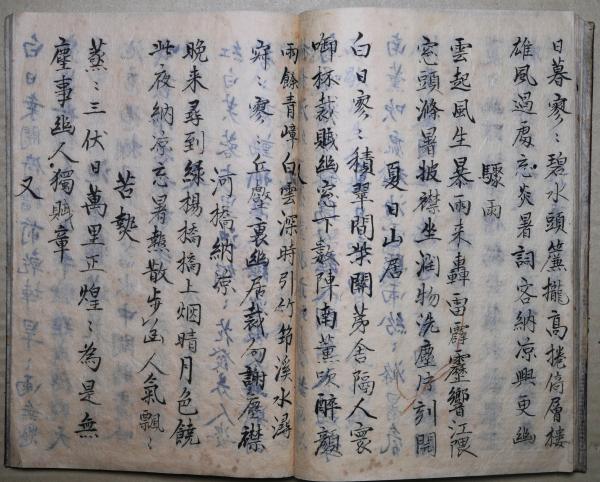 日暮寥〻碧水頭簾櫳高捲倚層楼
雄風過處忘炎暑詞客納涼興更幽
驟雨
雲起風生暴雨来轟雷霹靂響江隈
窓頭滌暑披襟坐潤物洗塵片刻開
夏日山居
白日寥〻積翠間柴關茅舎隔人寰
啣杯裁賦幽窓下数陣南薫吹醉顔
又
雨餘青嶂白雲深時引竹筇溪水潯
寂〻寥〻丘壑裏幽居裁句謝塵襟
河橋納凉
晩来尋到緑楊橋橋上烟晴月色饒
此夜納凉忘暑熱散歩幽人氣飄〻
苦熱
蒸〻三伏日萬里正煌〻為是無
塵事幽人獨賦章
又